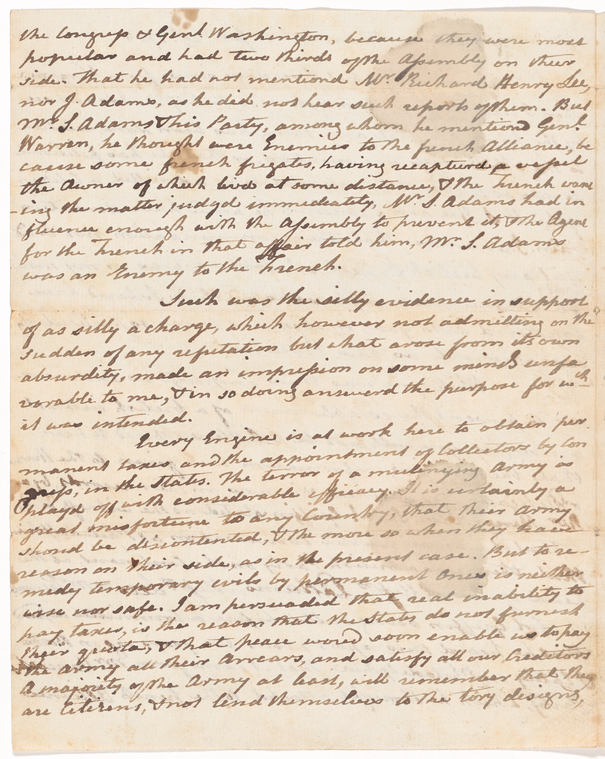 the Congress & Genl Washington, because they were most
popular and had two thirds of the Assembly on their
side. That he had not mentiond Mr. Richard Henry Lee,
nor J. Adams, as he did not hear such reports of them. But
Mr. S. Adams & his Party, among whom he mentiond Genl.
Warren, he thought were Enemies to the french Alliance, be
cause some french frigates, having recapturd a vessel
the Owner of which livd at some distance, & the French want
ing the matter judgd immediately, Mr. S. Adams had in
fluence enough with the Assembly to prevent it, & the Agent
for the French in that affair told him, Mr. S. Adams
was an Enemy to the French.
Such was the silly evidence in support
of as silly a charge, which however not admitting on the
sudden of any refutation but what arose from its own
absurdity, made an impression on some minds unfa
vorable to me, & in so doing answerd the purpose for wch
it was intended.
Every Engine is at work here to obtain per
manent taxes, and the appointment of Collectors by Con
gress, in the States. The terror of a mutinying Army is
playd off with considerable efficacy. It is certainly a
great misfortune to any Country, that their Army
should be discontented, & the more so when they have
reason on their side, as in the present case. But to re-
medy temporary evils by permanent Ones is neither
wise nor safe. I am persuaded that real inability to
pay taxes, is the reason that the States do not furnish
their quota, & that peace woud soon enable us to pay
the Army all their Arrears, and satisfy all our Creditors
A majority of the Army at least, will remember that they
are Citizens, & not lend themselves to the tory designs,